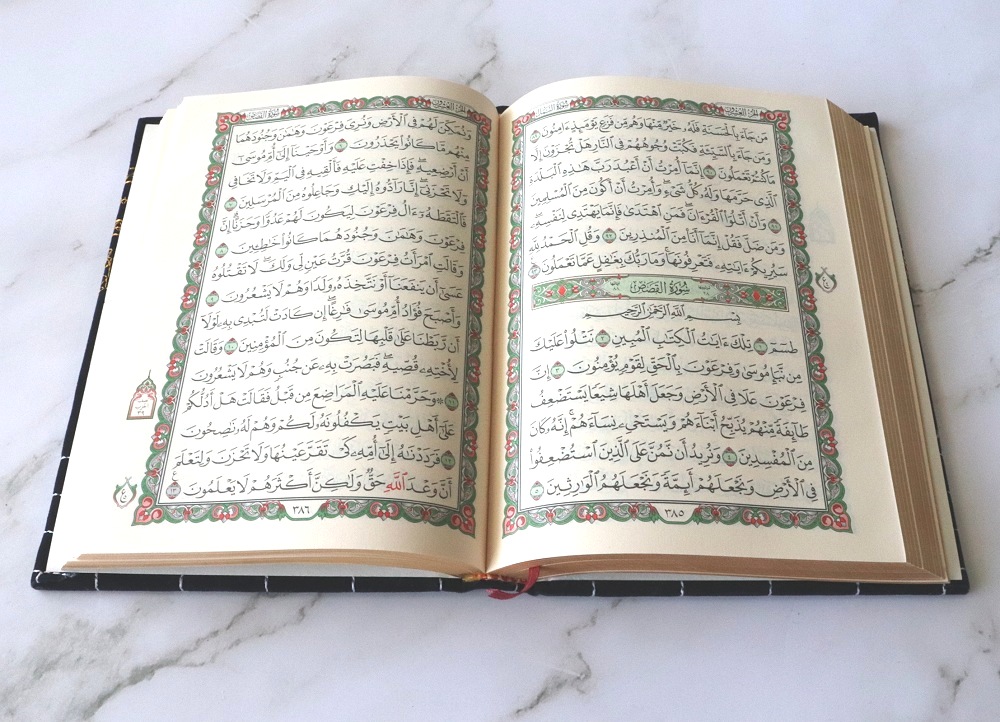 الجزء العشرون
سورة النمل
مَن جَآءَ بِٱلْحَسَنَةِ فَلَهُۥ خَيْرٌ مِّنْهَا وَهُم مِّن فَزَعٍ يَوْمَئِذٍ ءَامِنُونَ ٨٩
وَمَن جَآءَ بِٱلسَّيِّئَةِ فَكُبَّتْ وُجُوهُهُمْ فِى ٱلنَّارِ هَلْ تُجْزَوْنَ إِلَّا
مَا كُنتُمْ تَعْمَلُونَ ٩٠ إِنَّمَآ أُمِرْتُ أَنْ أَعْبُدَ رَبَّ هَٰذِهِ ٱلْبَلْدَةِ
ٱلَّذِى حَرَّمَهَا وَلَهُۥ كُلُّ شَىْءٍ وَأُمِرْتُ أَنْ أَكُونَ مِنَ ٱلْمُسْلِمِينَ
٩١ وَأَنْ أَتْلُوَا۟ ٱلْقُرْءَانَ فَمَنِ ٱهْتَدَىٰ فَإِنَّمَا يَهْتَدِى لِنَفْسِهِۦ
وَمَن ضَلَّ فَقُلْ إِنَّمَآ أَنَا۠ مِنَ ٱلْمُنذِرِينَ ٩٢ وَقُلِ ٱلْحَمْدُ لِلَّهِ
سَيُرِيكُمْ ءَايَٰتِهِۦ فَتَعْرِفُونَهَا وَمَا رَبُّكَ بِغَٰفِلٍ عَمَّا تَعْمَلُونَ ٩٣
سُورَةُ القَصَصِ
بِسْمِ ٱللَّهِ ٱلرَّحْمَٰنِ ٱلرَّحِيمِ
طسٓمٓ ١ تِلْكَ ءَايَٰتُ ٱلْكِتَٰبِ ٱلْمُبِينِ ٢ نَتْلُوا۟ عَلَيْكَ
مِن نَّبَإِ مُوسَىٰ وَفِرْعَوْنَ بِٱلْحَقِّ لِقَوْمٍ يُؤْمِنُونَ ٣ إِنَّ
فِرْعَوْنَ عَلَا فِى ٱلْأَرْضِ وَجَعَلَ أَهْلَهَا شِيَعًا يَسْتَضْعِفُ
طَآئِفَةً مِّنْهُمْ يُذَبِّحُ أَبْنَآءَهُمْ وَيَسْتَحْىِۦ نِسَآءَهُمْ إِنَّهُۥ كَانَ
مِنَ ٱلْمُفْسِدِينَ ٤ وَنُرِيدُ أَن نَّمُنَّ عَلَى ٱلَّذِينَ ٱسْتُضْعِفُوا۟
فِى ٱلْأَرْضِ وَنَجْعَلَهُمْ أَئِمَّةً وَنَجْعَلَهُمُ ٱلْوَٰرِثِينَ ٥
٣٨٥
الجزء العشرون
سورة القصص
وَنُمَكِّنَ لَهُمْ فِى ٱلْأَرْضِ وَنُرِىَ فِرْعَوْنَ وَهَٰمَٰنَ وَجُنُودَهُمَا
مِنْهُم مَّا كَانُوا۟ يَحْذَرُونَ ٦ وَأَوْحَيْنَآ إِلَىٰٓ أُمِّ مُوسَىٰٓ
أَنْ أَرْضِعِيهِ فَإِذَا خِفْتِ عَلَيْهِ فَأَلْقِيهِ فِى ٱلْيَمِّ وَلَا تَخَافِى
وَلَا تَحْزَنِىٓ إِنَّا رَآدُّوهُ إِلَيْكِ وَجَاعِلُوهُ مِنَ ٱلْمُرْسَلِينَ ٧
فَٱلْتَقَطَهُۥٓ ءَالُ فِرْعَوْنَ لِيَكُونَ لَهُمْ عَدُوًّا وَحَزَنًا إِنَّ
فِرْعَوْنَ وَهَٰمَٰنَ وَجُنُودَهُمَا كَانُوا۟ خَٰطِـِٔينَ ٨
وَقَالَتِ ٱمْرَأَتُ فِرْعَوْنَ قُرَّتُ عَيْنٍ لِّى وَلَكَ لَا تَقْتُلُوهُ
عَسَىٰٓ أَن يَنفَعَنَآ أَوْ نَتَّخِذَهُۥ وَلَدًا وَهُمْ لَا يَشْعُرُونَ ٩
وَأَصْبَحَ فُؤَادُ أُمِّ مُوسَىٰ فَٰرِغًا إِن كَادَتْ لَتُبْدِى بِهِۦ لَوْلَآ
أَن رَّبَطْنَا عَلَىٰ قَلْبِهَا لِتَكُونَ مِنَ ٱلْمُؤْمِنِينَ ١٠ وَقَالَتْ
لِأُخْتِهِۦ قُصِّيهِ فَبَصُرَتْ بِهِۦ عَن جُنُبٍ وَهُمْ لَا يَشْعُرُونَ
١١ ۞ وَحَرَّمْنَا عَلَيْهِ ٱلْمَرَاضِعَ مِن قَبْلُ فَقَالَتْ هَلْ أَدُلُّكُمْ
عَلَىٰٓ أَهْلِ بَيْتٍ يَكْفُلُونَهُۥ لَكُمْ وَهُمْ لَهُۥ نَٰصِحُونَ
١٢ فَرَدَدْنَٰهُ إِلَىٰٓ أُمِّهِۦ كَىْ تَقَرَّ عَيْنُهَا وَلَا تَحْزَنَ وَلِتَعْلَمَ
أَنَّ وَعْدَ ٱللَّهِ حَقٌّ وَلَٰكِنَّ أَكْثَرَهُمْ لَا يَعْلَمُونَ ١٣
٣٨٦